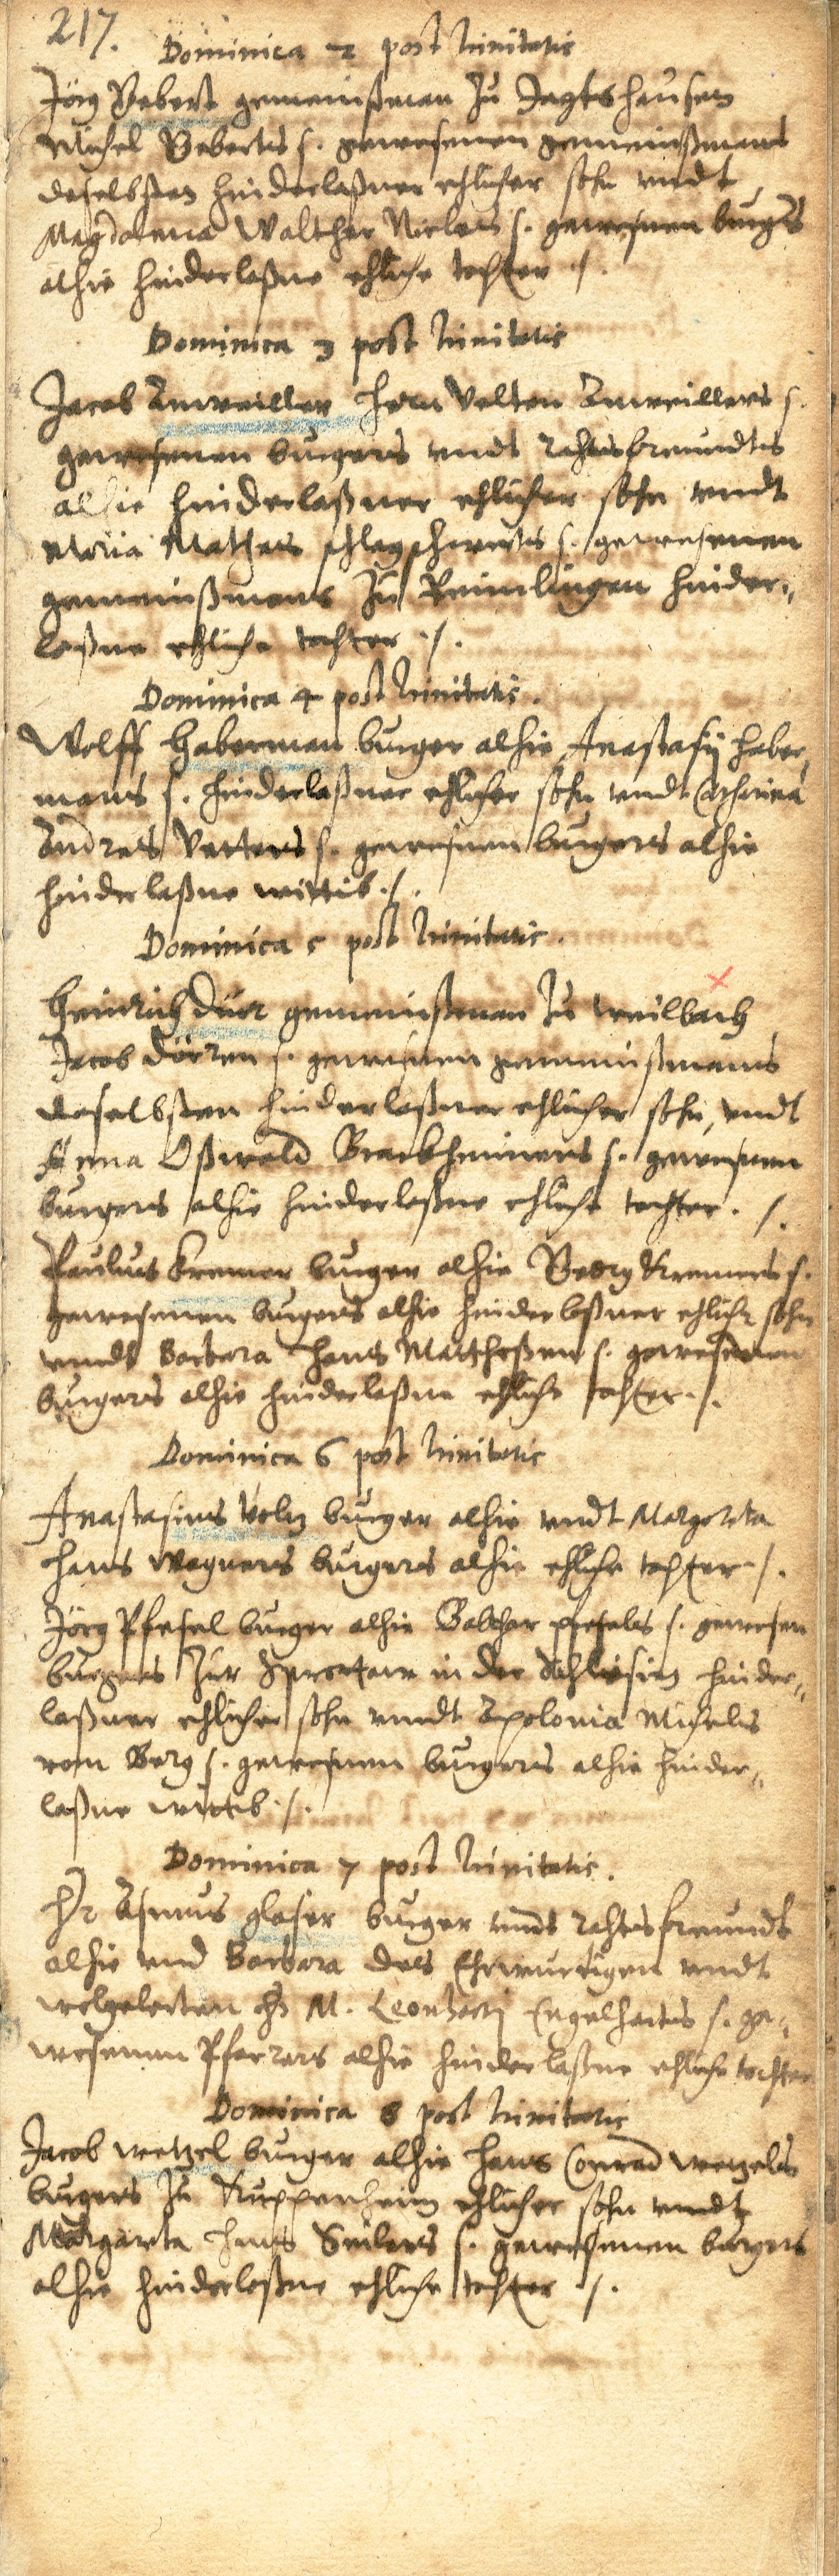 217.
Dominica 2 post Trinitatis
Jörg Bebert gemeinßman zu Jagtshausen
Michel Beberts s. gewesenen gemeinßmans
daselbsten hinderlaßner ehlicher sohn undt
Magdalena Walther Niclaus s. gewesnen burgers
alhie hinderlaßne ehliche tochter ./.
Dominica 3 post Trinitatis
Jacob Anweiller Herrn Velten Anweillers s.
gewesenen burgers undt rahtsfreundts
alhie hinderlaßner ehlicher sohn undt
Maria Mathes schlagschwerts s. gewesenen
gemeinßmans zu Reimlingen hinder„
laßne ehliche tochter ./.
Dominica 4 post Trinitatis.
Wolff Haberman burger alhie Anastasij Haber„
mans s. hinderlaßner ehlicher sohn undt Catharina
Andreas Vetters s. gewesnen burgers alhie
hinderlaßne wittib ./.
Dominica 5 post Trinitatis.
Heinrich Dürr gemeinßman zu Weilbach
Jacob Dörren s. gewesnen gemeinßmans
daselbsten hinderlaßner ehlicher sohn, undt
Anna Oßwald s. gewesnen
burgers alhie hinderlaßne ehliche tochter. ./.
Paulus Kremer burger alhie Georg Kremers s.
gewesenen burgers alhie hinderlaßner ehlicher sohn
undt Barbara Hans s. gewesenen
burgers alhie hinderlaßne ehliche tochter ./.
Dominica 6 post Trinitatis
Anastasius Veltz burger alhie undt Margreta
Hans Wagners burgers alhie ehliche tochter ./.
Jörg Pfefel burger alhie Balthar Pfefels s. gewesen
burgers zur in der Schlesien hinder„
laßner ehlicher sohn undt Apolonia Michels
vom Berg s. gewesnen burgers alhie hinder„
laßne wittib ./.
Dominica 7 post Trinitatis.
Hr Asmus Glaser burger undt rahtsfreundt
alhie und Barbara des Ehrwurdigen undt
wolgelerten Hr M. Leonharti Engelharts s. ge„
wesenen Pfarrers alhie hinderlaßne ehliche tochter
Dominica 8 post Trinitatis
Jacob Wetzel burger alhie Hans Conrad Wetzels
burgers zu Kuppenheim ehlicher sohn undt
Margareta Hans Seilers s. gewesenen burgers
alhie hinderlaßne ehliche tochter ./.